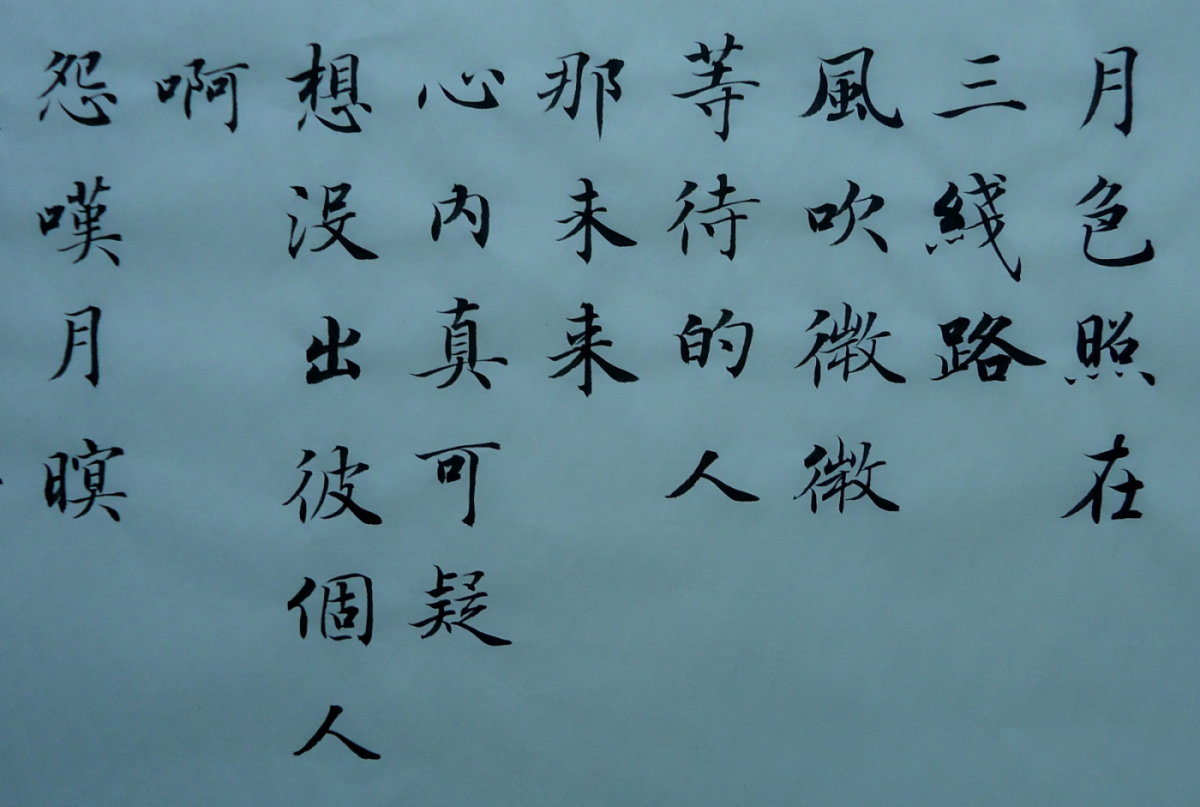 月色照在
三綫路
風吹微微
等待的人
那未来
心内真可疑
想没出彼個人
啊
怨嘆月暝